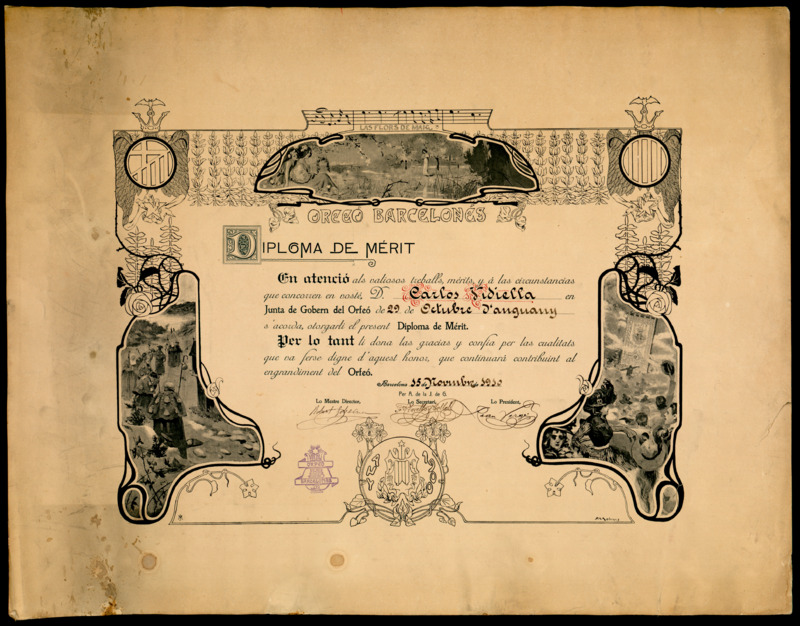 LAS FLORS DE MAIG
ORFEO BARCELONÉS
DIPLOMA DE MÉRIT
En atenció als valiosos treballs, mérits, y á las circunstancias
que concorren en vosté, D. Carlos Vidiella en
Junta de Gobern del Orfeó de 29 de Octubre d'anguany
s'acorda, otorgarli el present Diploma de Mérit.
Per lo tant li dona las gracias y confia per las cualitats
que va ferse digne d'aquest honor, que continuará contribuint al
engrandiment del Orfeó.
Barcelona 15 de Novembre de 1910
Per A. de la J. de G.
Lo Mestre Director, Lo Secretari, Lo President,